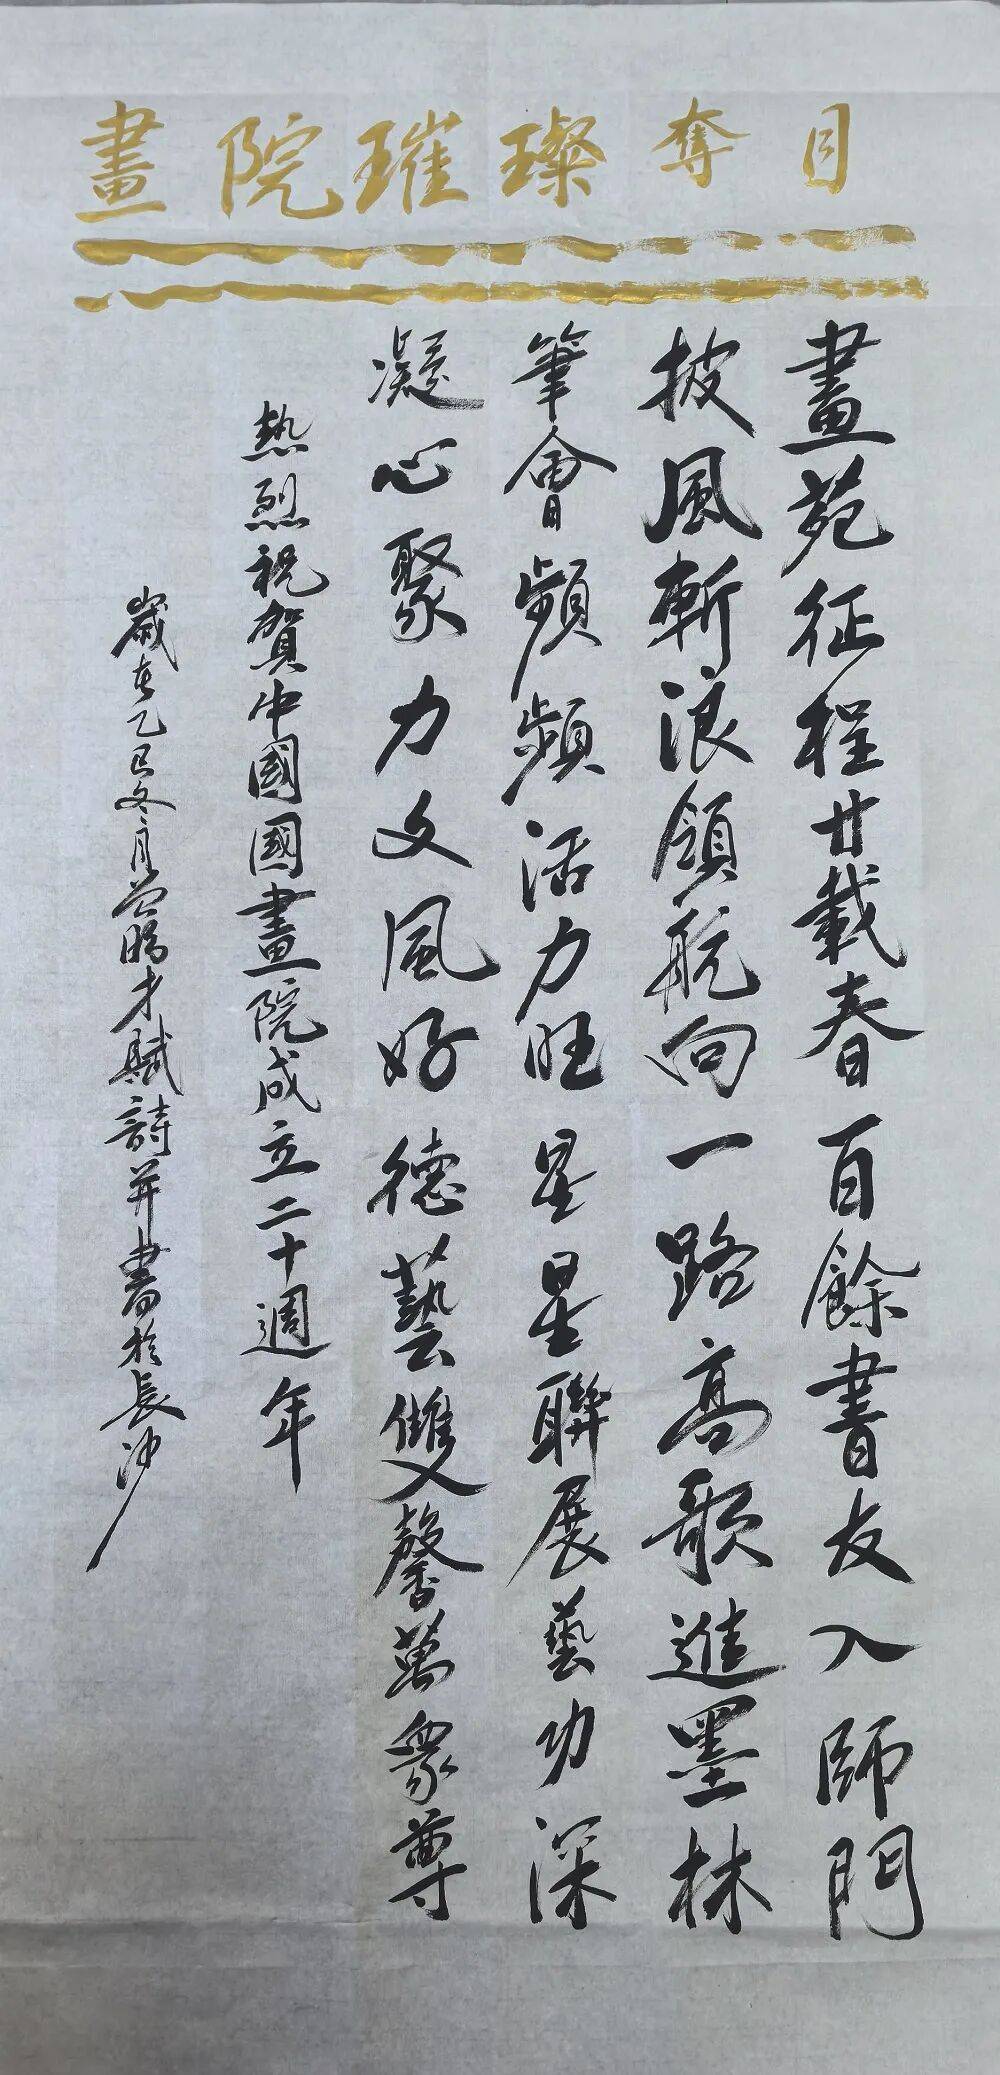 畫院璀璨奪目
畫苑征程廿載春百餘書友入師門
披風斬浪領航向一路高歌進墨林
筆會頻頻活力旺星星聯展藝功深
凝心聚力文風好德藝雙馨萬眾尊
熱烈祝賀中國國畫院成立二十週年
歲在乙巳冬月曾鵬才賦詩并書於長沙